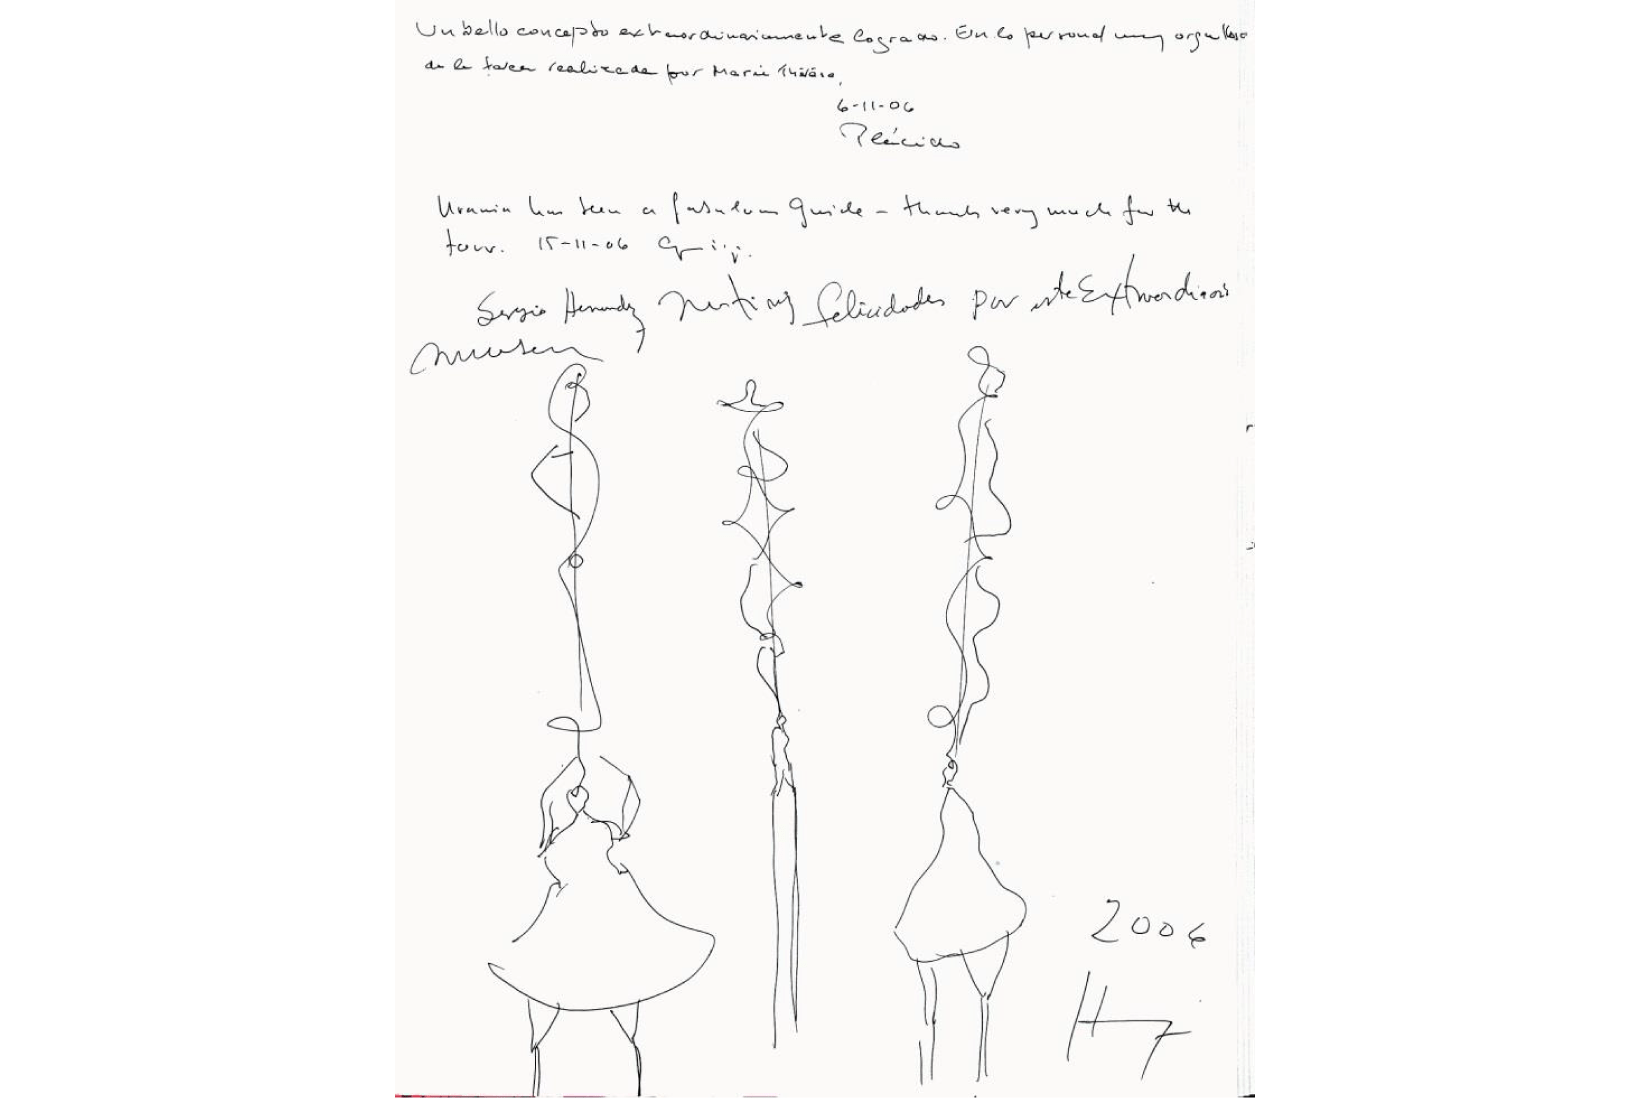 Un bello concepto extraordinariamente logrado. En lo personal muy orgulloso
de la tarea realizada por Marie Thérèse.
6-11-06
Plácido
Urania has been a fabulous guide – thanks very much for the
tour. 15-11-06
Sergio Hernandez felicidades por este Extraordinario
museo
2006